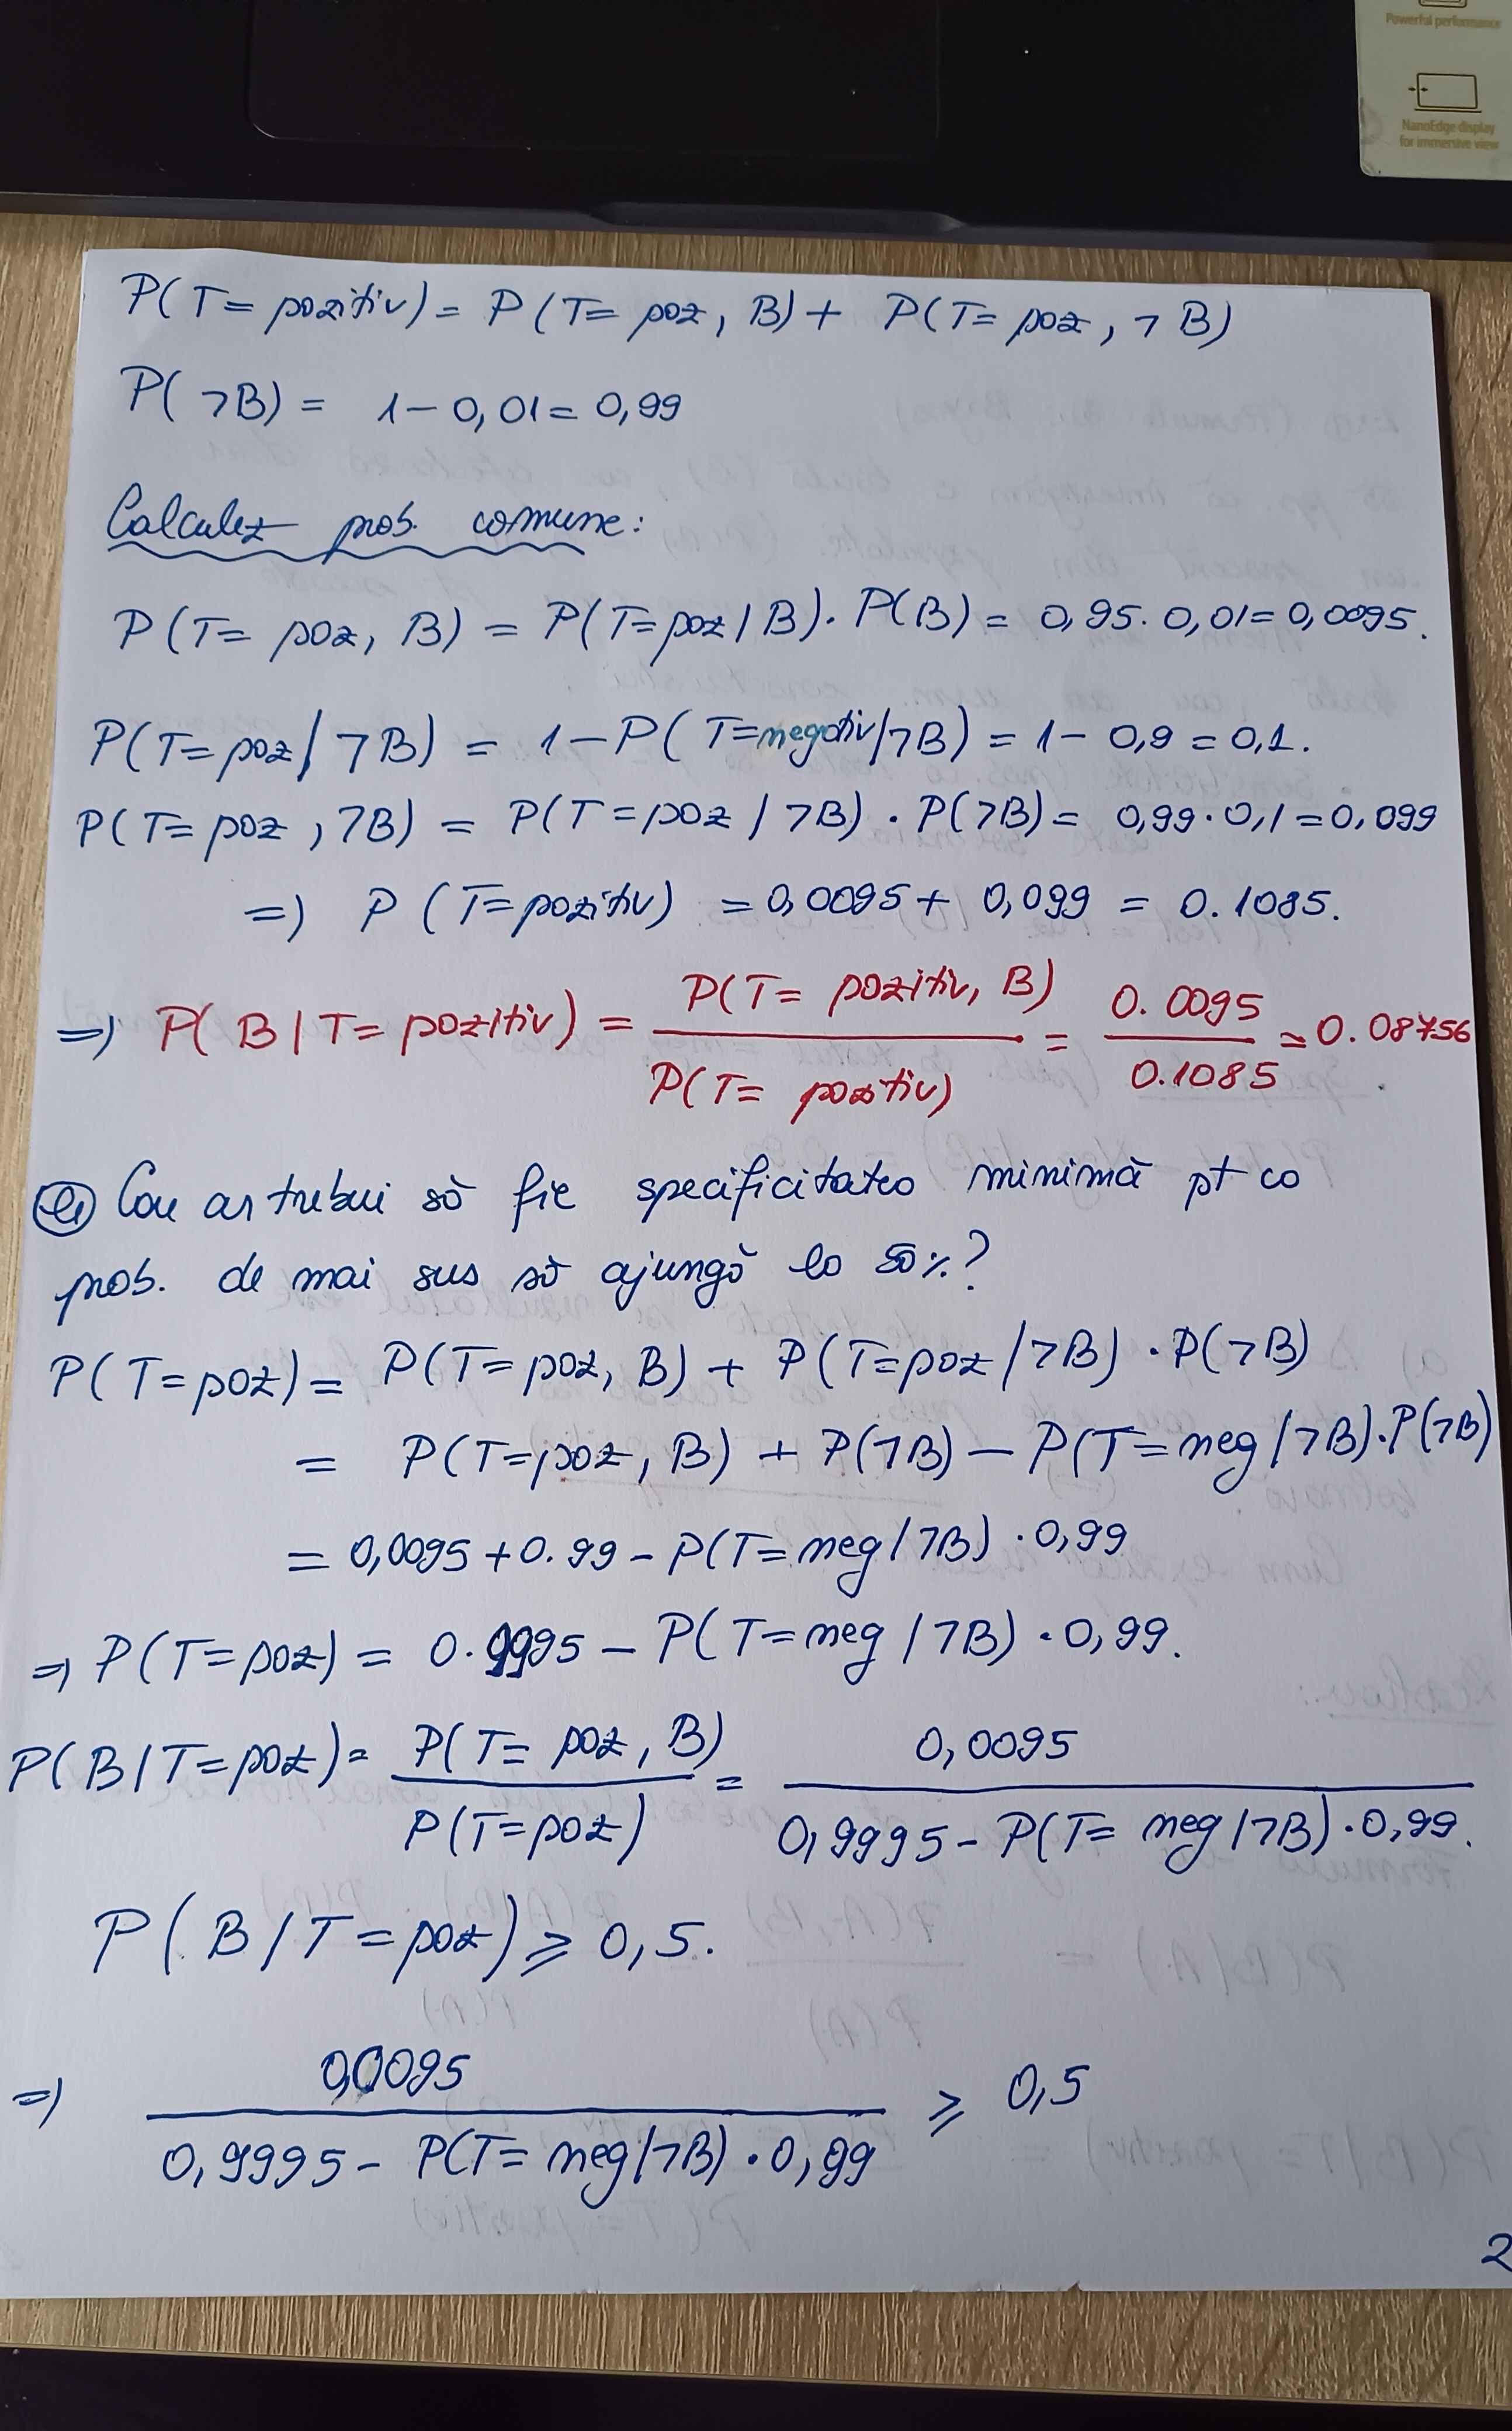 Powerful performance
NanoEdge display
for immersive view
P(T= pozitiv) = P(T= poz, B) + P(T= poz, ¬B)
P(¬B) = 1-0,01= 0,99
Calculez prob. comune:
P(T= poz, B) = P(T=poz/B). P(B) = 0,95. 0,01=0,0095.
P(T=poz/¬B) = 1-P(T=negativ/¬B) = 1- 0,9 = 0,1.
P(T= poz, ¬B) = P(T=poz/¬B) . P(¬B)= 0,99.0,1=0,099
=) P(T=pozitiv) =0,0095+ 0,099 = 0.1085.
=) P(B/T= pozitiv) = P(T= pozitiv, B) / P(T= pozitiv) = 0.0095 / 0.1085 ≃ 0.08756.
Care ar trebui să fie specificitatea minimă pt ca
prob. de mai sus să ajungă la 50%?
P(T=poz) = P(T=poz, B) + P(T=poz/¬B) . P(¬B)
= P(T=poz, B) + P(¬B) - P(T=neg/¬B).P(¬B)
= 0,0095+0.99- P(T=neg/¬B) . 0,99
=) P(T=poz) = 0.9995 - P(T=neg/¬B) . 0,99.
P(B/T=poz) = P(T= poz, B) / P(T=poz) = 0,0095 / 0,9995- P(T= neg/¬B).0,99.
P(B/T=poz) ⩾ 0,5.
=) 0,0095 / 0,9995- P(T= neg/¬B).0,99 ⩾ 0,5
2